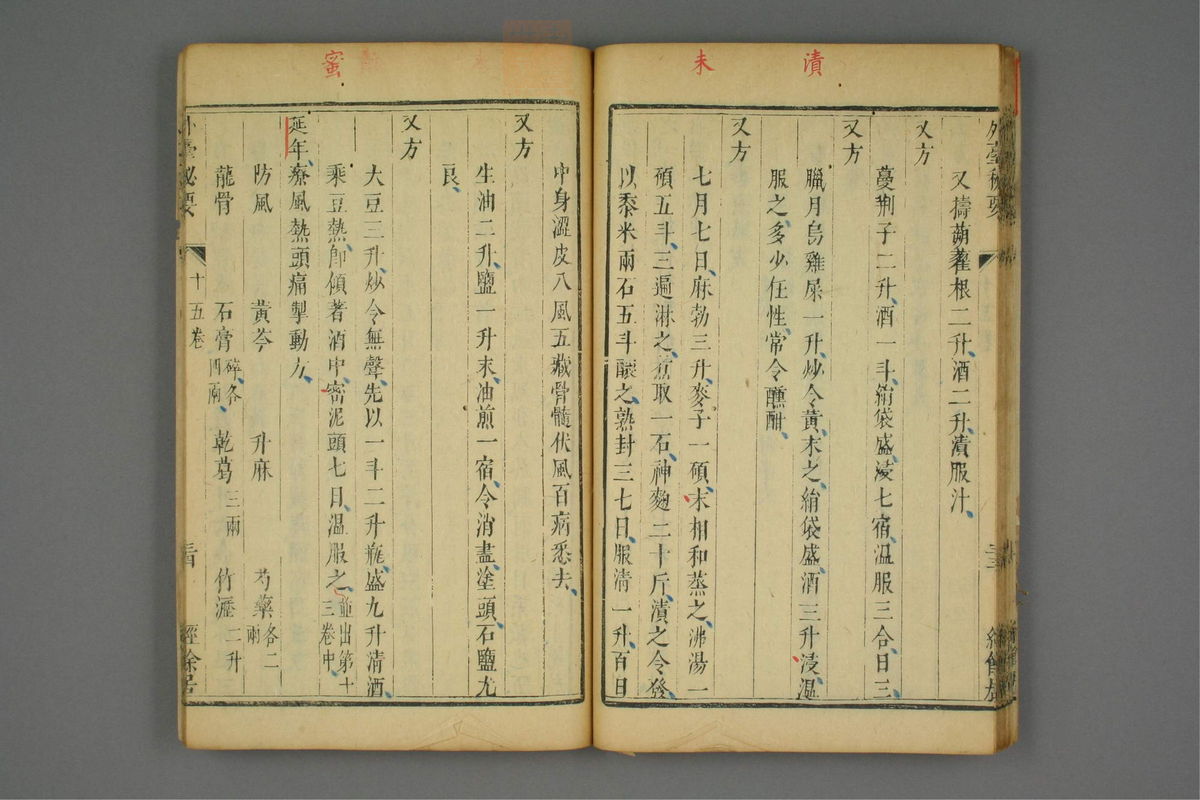 漬
末
蜜
外臺秘要
又擣蒴藋根二升酒二升漬服汁
又方
蔓荆子二升酒一斗絹袋盛浸七宿溫服三合日三
又方
臘月烏雞屎一升炒令黃末之絹袋盛酒三升浸溫
服之多少任性常令醺酣
又方
七月七日麻勃三升麥子一碩末相和蒸之沸湯一
碩五斗三遍淋之煮取一石神麴二十斤漬之令發
以黍米兩石五斗釀之熟封三七日服清一升百日
中身澀皮八風五藏骨髓伏風百病悉去
又方
生油二升鹽一升末油煎一宿令消盡塗頭石鹽尤
良
又方
大豆三升炒令無聲先以一斗二升瓶盛九升清酒
乘豆熱即傾著酒中密泥頭七日溫服之並出第十三卷中
延年療風熱頭痛掣動方
防風 黃芩 升麻 芍藥各二兩
龍骨 石膏碎各四兩 乾葛三兩 竹瀝二升
外臺秘要 十五卷 經餘居